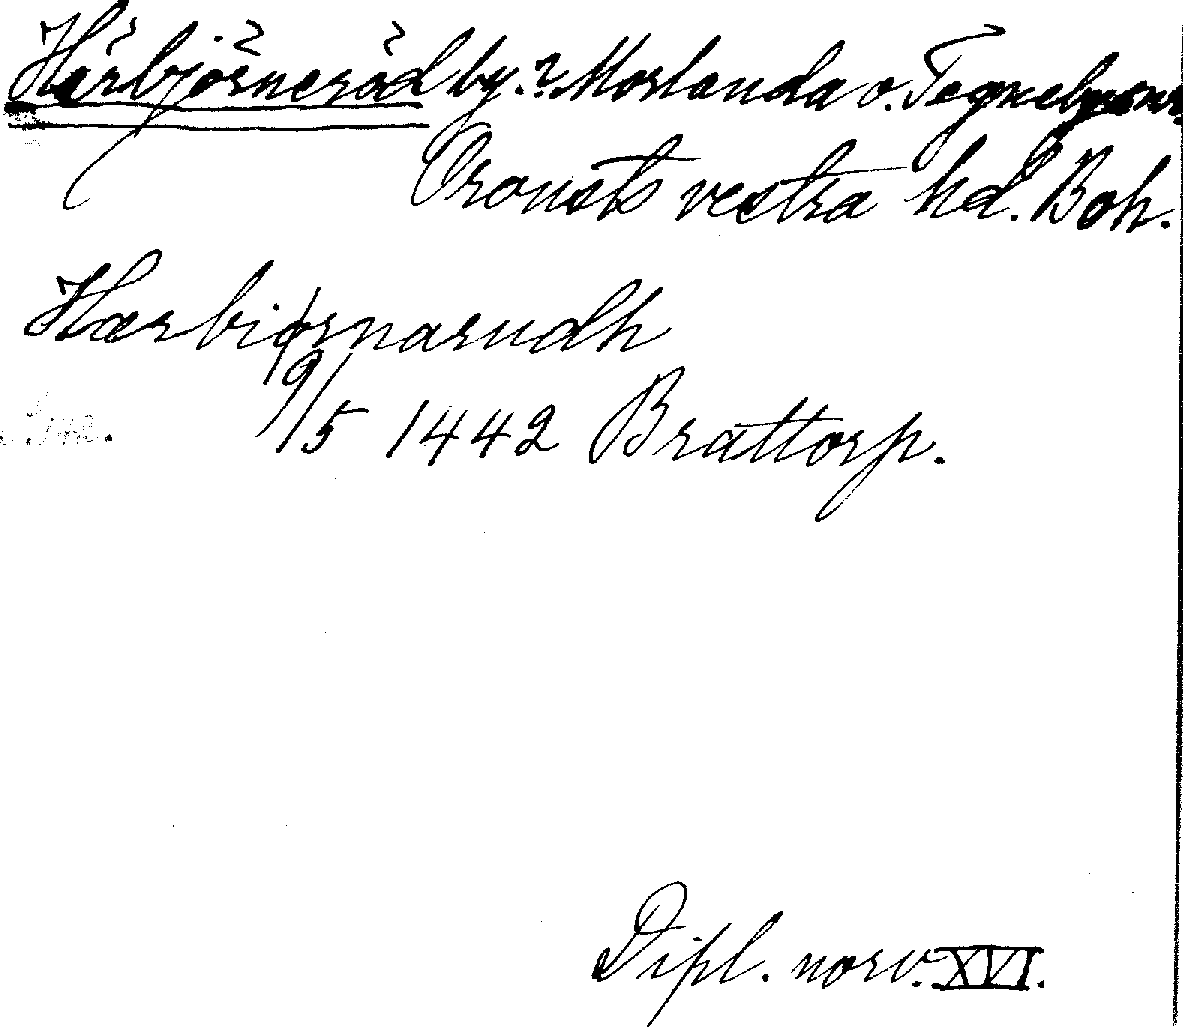 Härbjörneröd by.? Morlanda o. Tegneby snr.
Orousts vestra hd. Boh.
Hærbiørnarudh
9/5 1442 Brattorp.
Dipl. norv. XVI.